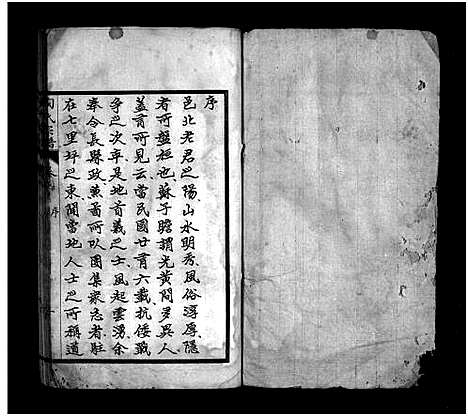 序
邑北老君之陽山水明秀風俗淳厚隱
者所盤桓也蘇子瞻謂光黃間多異人
蓋有所見云當民國廿有六載抗倭戰
爭之次年是地首義之士風起雲湧余
奉令長縣政兼晉所以團集眾志者駐
在七里坪之東聞當地人士之所稱道
氏宗譜
序